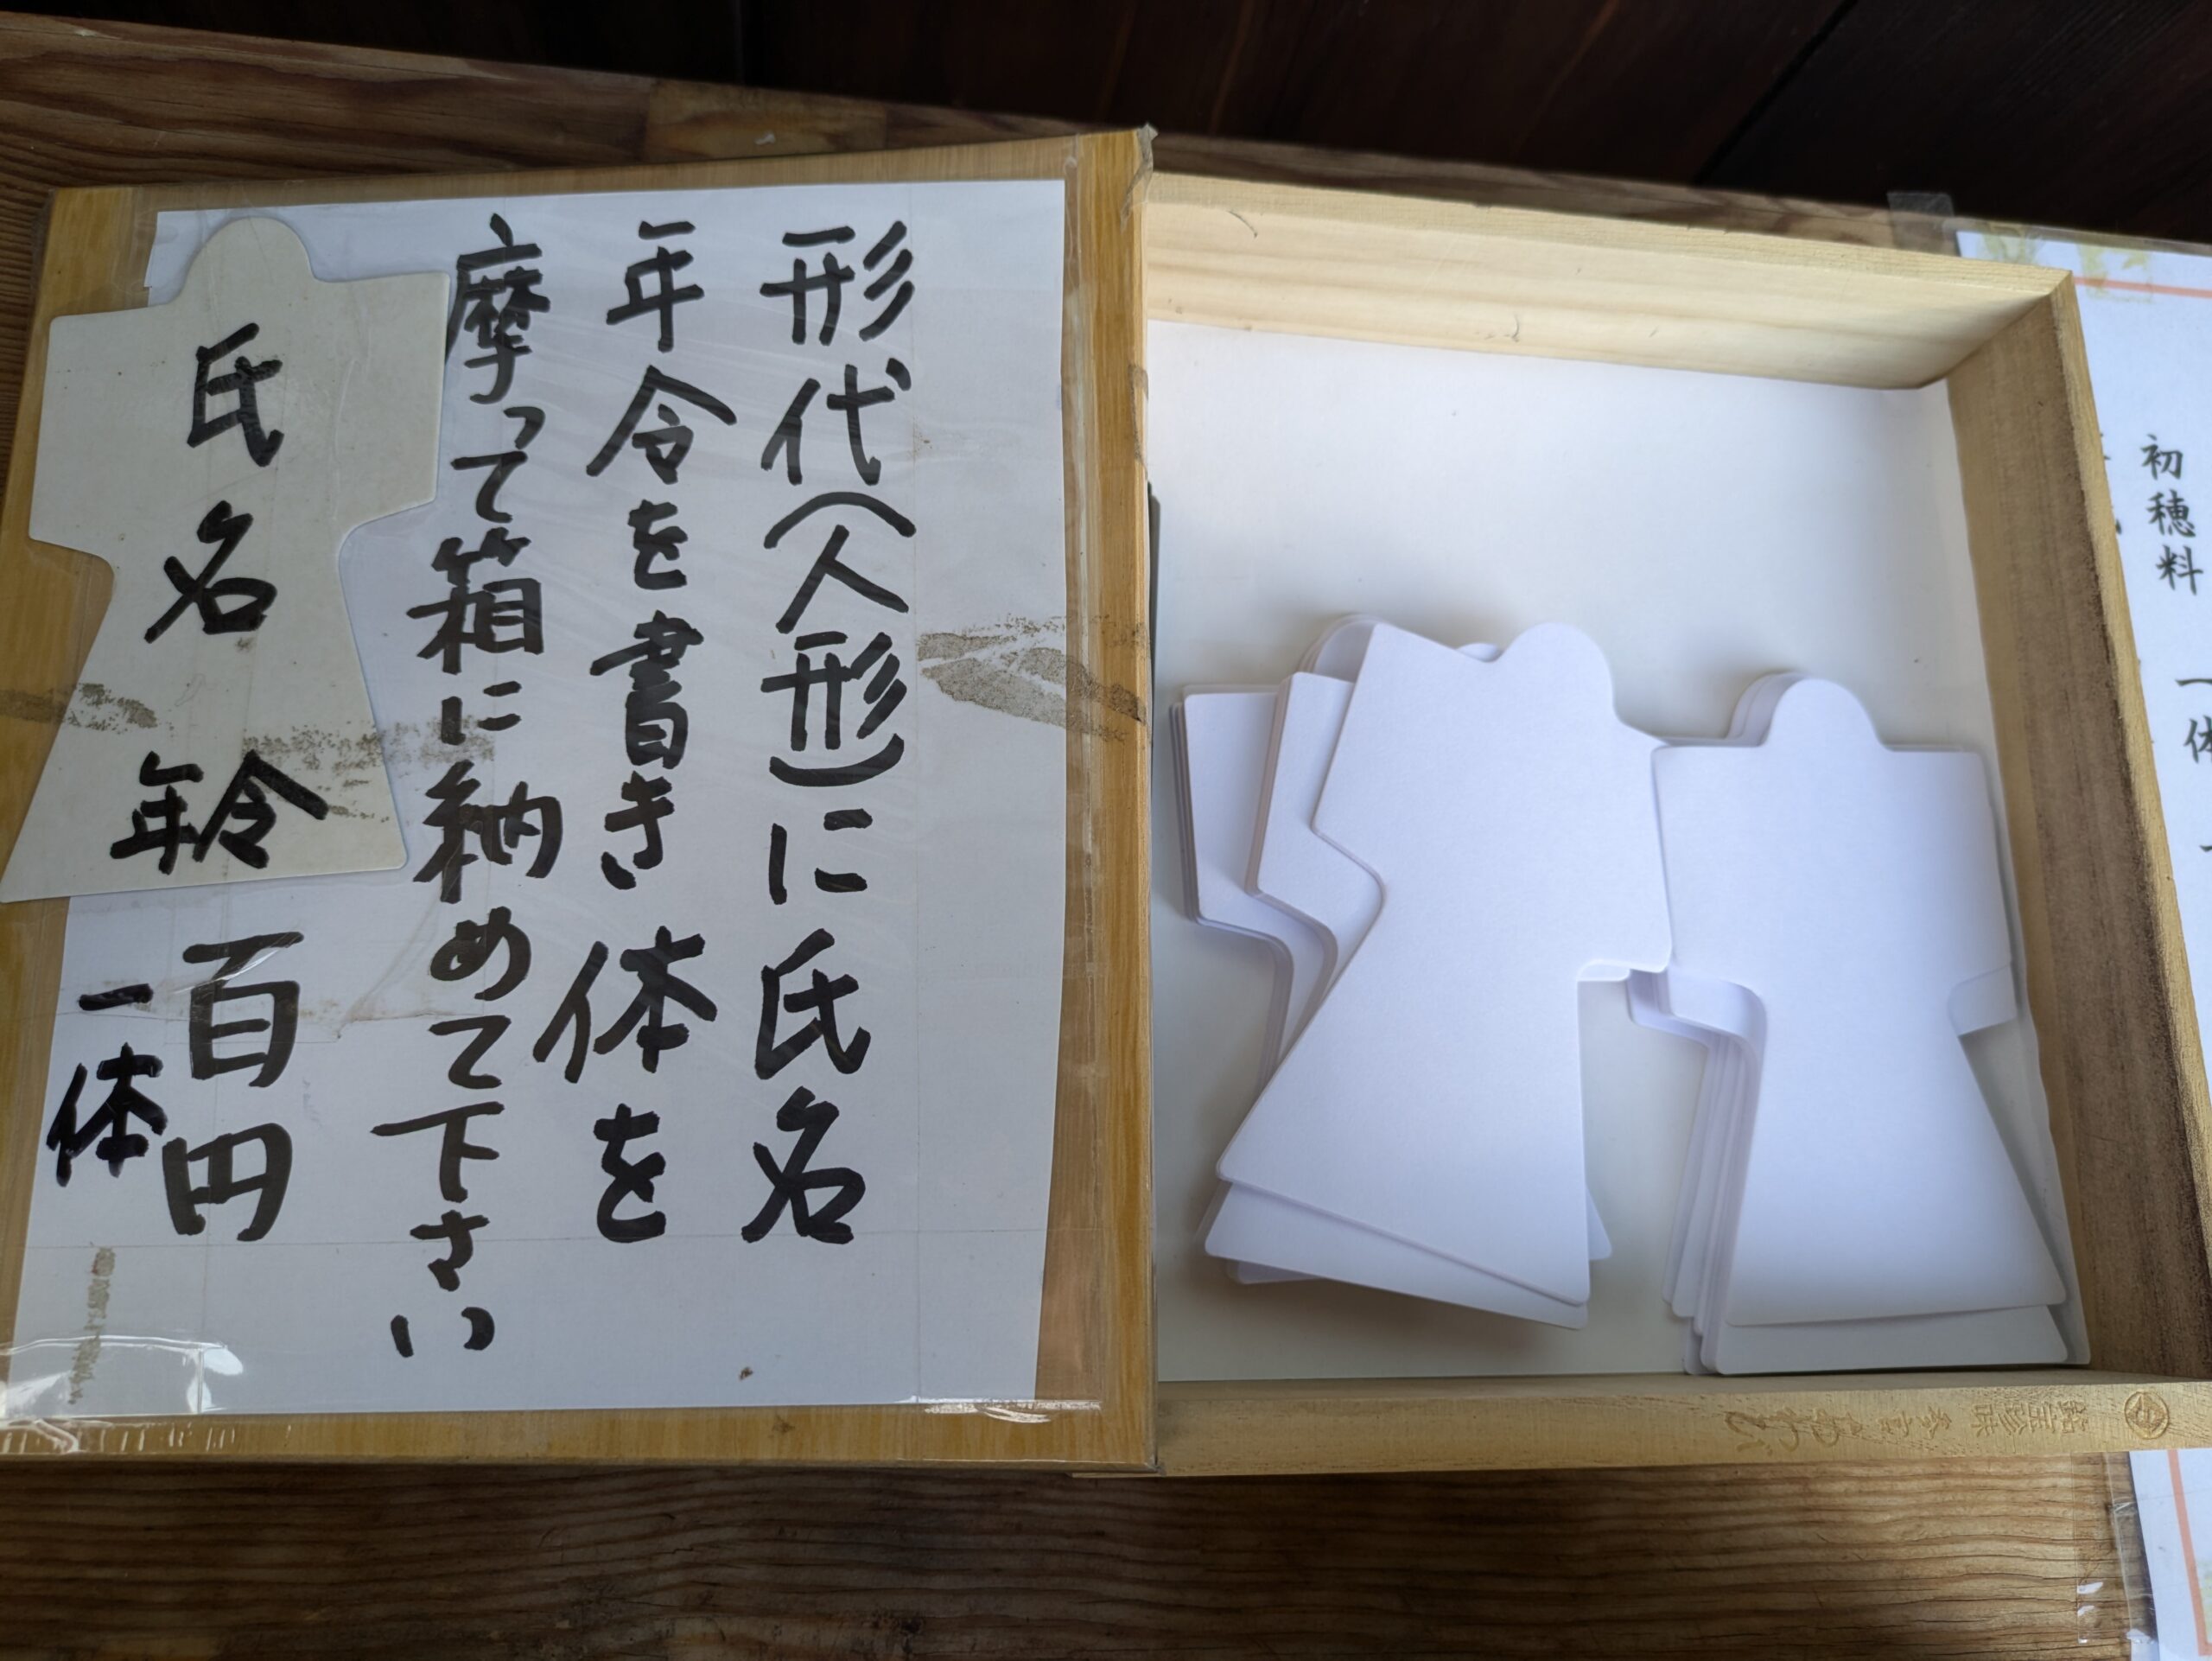 形代(人形)に氏名
年令を書き体を
摩って箱に納めて下さい
氏名
年令
百円
一体
初穂料 一体